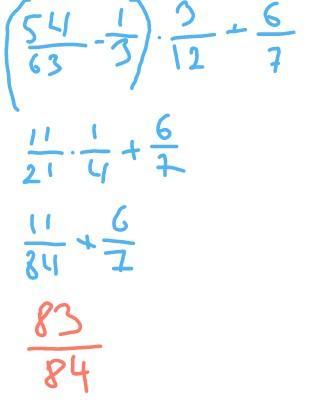 (54/63 - 1/3) · 3/12 + 6/7
11/21 · 1/4 + 6/7
11/84 + 6/7
83/84